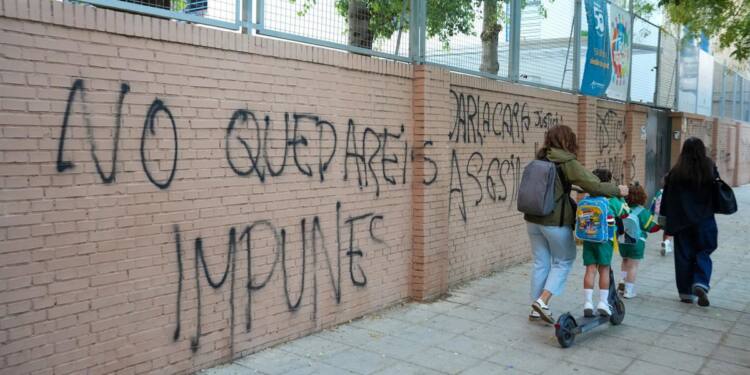 NO QUEDAREIS
IMPUNES
DAR LA CARA
Justicia
ASESINOS